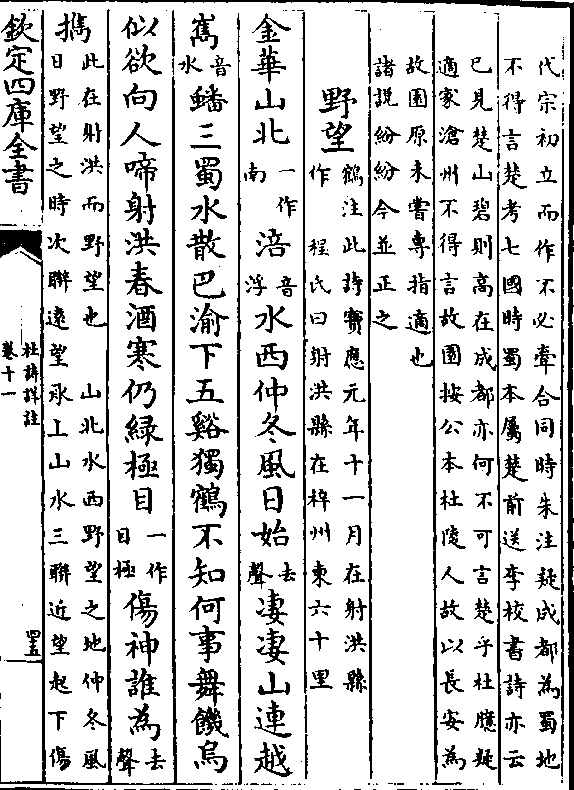 代宗初立而作不必牽合同時朱注疑成都為蜀地
不得言楚考七國時蜀本屬楚前送李校書詩亦云
已見楚山碧則高在成都亦何不可言楚乎杜臆疑
適家滄州不得言故園按公本杜陵人故以長安為
故園原未嘗專指適也
諸說紛紛今並正之
野望
鶴注此詩寶應元年十一月在射洪縣
作 程氏曰射洪縣在梓州東六十里
金華山北一作南涪音浮水西仲冬風日始去聲凄凄山連越
嶲音水蟠三蜀水散巴渝下五谿獨鶴不知何事舞饑烏
似欲向人啼射洪春酒寒仍緑極目一作目極傷神誰為去聲
攜
此在射洪而野望也 山北水西野望之地仲冬風
日野望之時次聯遠望承上山水三聯近望起下傷
欽定四庫全書
杜詩詳註
卷十一
四五